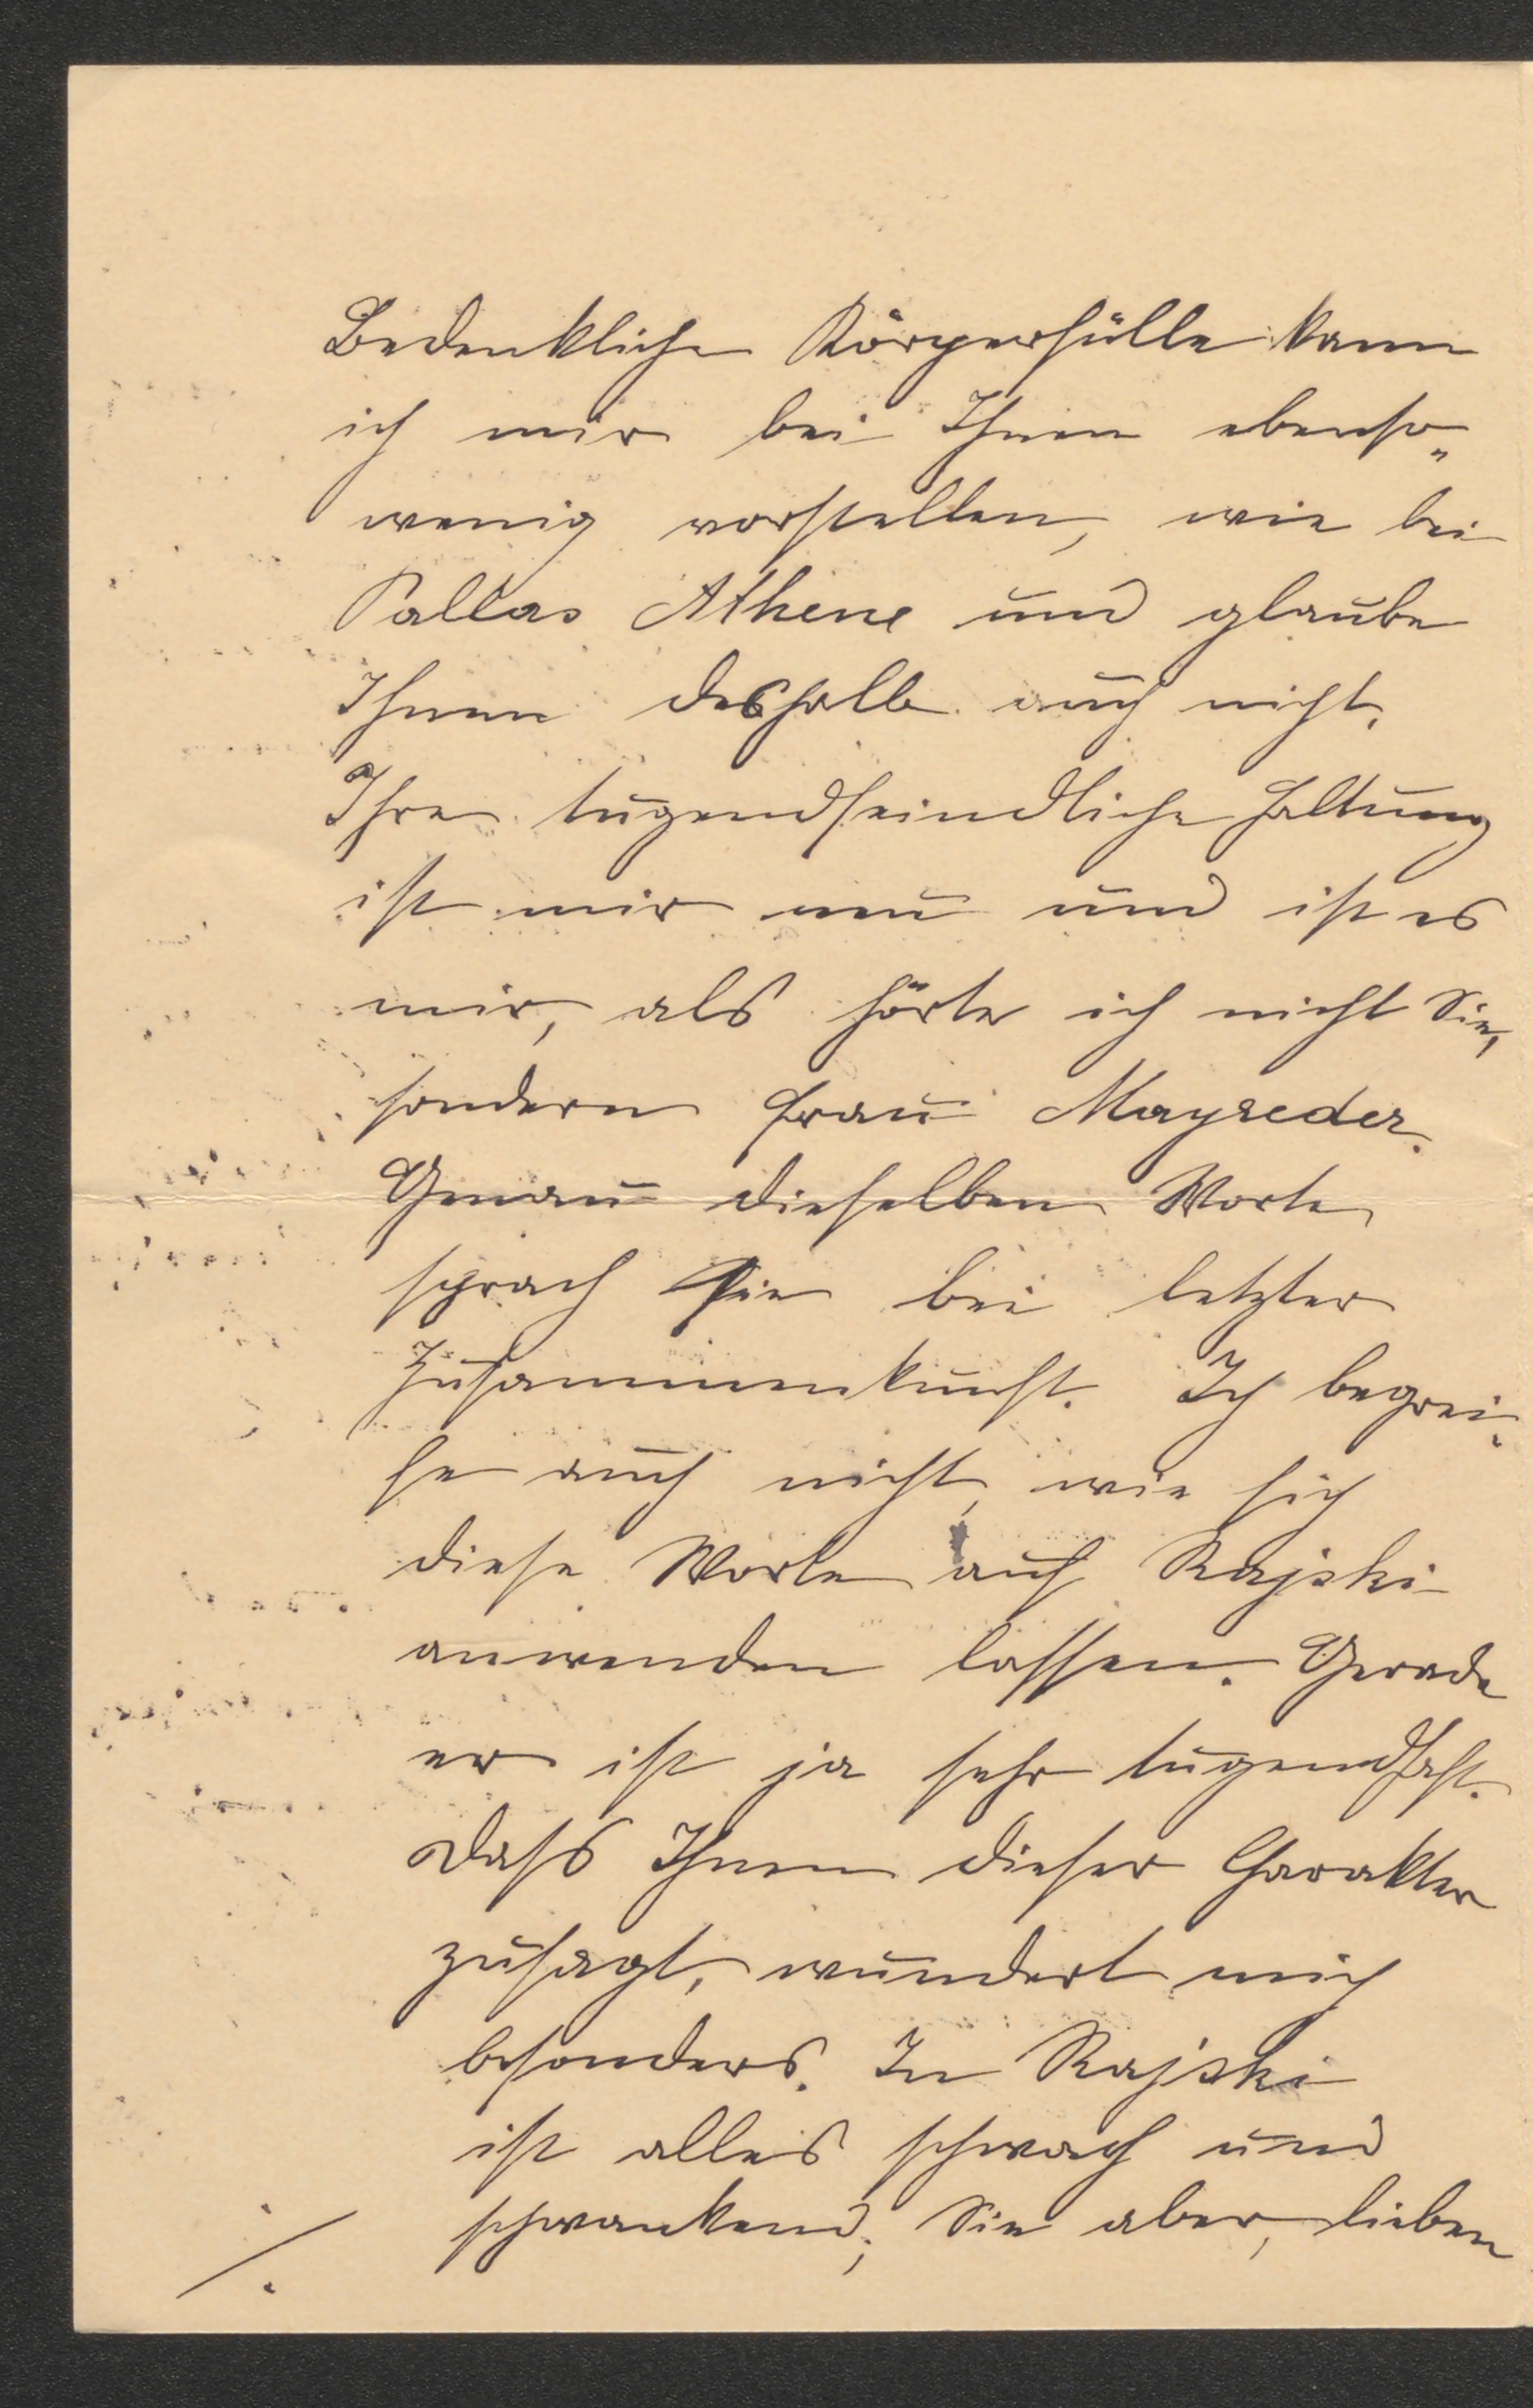 Bedenkliche Körperfülle kann
ich mir bei Ihnen ebenso„
wenig vorstellen, wie bei
Pallas Athene und glaube
Ihnen deshalb auch nicht.
Ihre tugendfeindliche Haltung
ist mir neu und ist es
mir, als hörte ich nicht Sie,
sondern Frau Mayreder.
Genau dieselben Worte
sprach sie bei letzter
Zusammenkunft. Ich begrei„
fe auch nicht, wie sich
diese Worte auf Rajski
anwenden lassen. Gerade
er ist ja sehr tugendhaft.
Dass Ihnen dieser Charakter
zusagt, wundert mich
besonders. In Rajski
ist alles schwach und
schwankend; Sie aber, lieben
./.